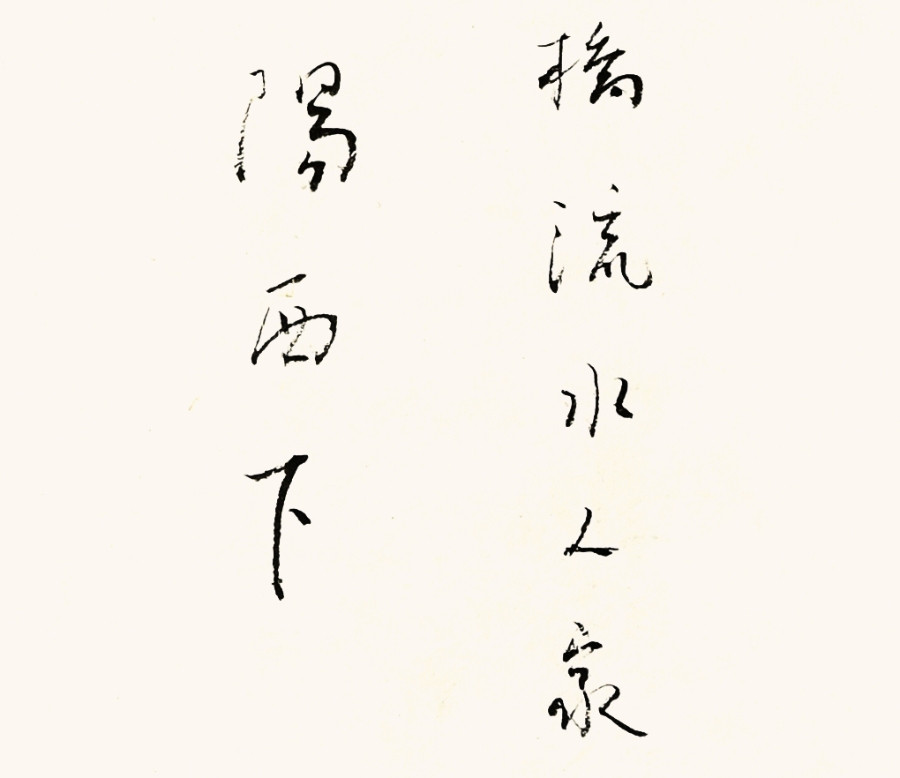 橋流水人家
陽西下